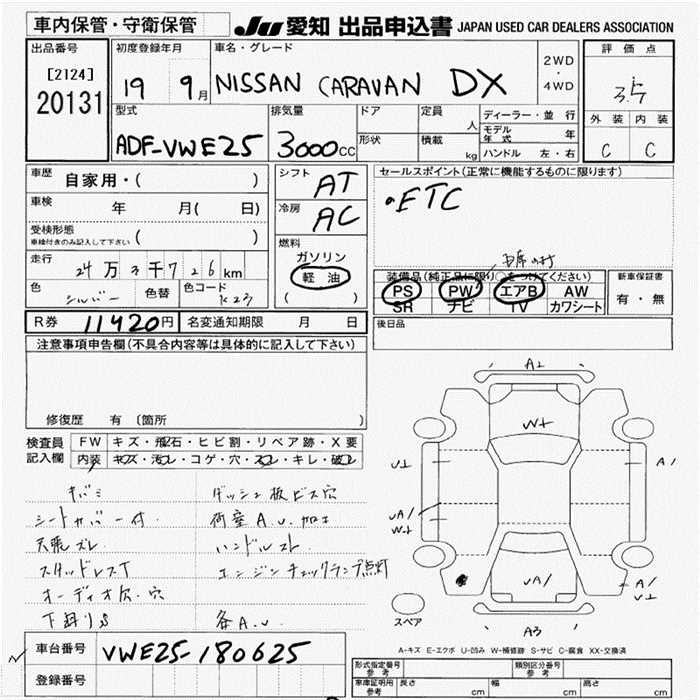 車内保管・守衛保管 JU 愛知 出品申込書 JAPAN USED CAR DEALERS ASSOCIATION
出品番号 初度登録年月 車名・グレード 2WD・4WD 評価点
[2124] 20131 19 9月 NISSAN CARAVAN DX 3.5
型式 排気量 ドア 定員 人 ディーラー・並行 外装 内装
ADF-VWE25 3000cc 形状 積載 kg モデル年式 年 C C
ハンドル 左・右
車歴 自家用・( ) シフト AT セールスポイント(正常に機能するものに限ります)
車検 年 月( 日) 冷房 AC ・ETC
受検形態 ( )
車検付きのみ記入して下さい
燃料 ガソリン 軽油 ( )
走行 24万3千726km
色 シルバー 色替 色コード K23
装備品(純正品に限り○をつけてください) 新車保証書
PS PW エアB AW 有・無
SR ナビ TV カワシート
R券 11420円 名変通知期限 月 日 後日品
注意事項申告欄(不具合内容等は具体的に記入して下さい)
修復歴 有 〔箇所 〕
検査員記入欄 FW キズ・飛石・ヒビ割・リペア跡・X要
内装 キズ・汚レ・コゲ・穴・スレ・キレ・破レ
キバミ ダッシュ板ビス穴
シートカバー付 荷室A.U.加工
天張ズレ ハンドルスレ
スタッドレスT エンジンチェックランプ点灯
オーディオ欠・穴
下廻りS 各A.U.
A1
W1
U1 A1
UA1
W1
UA1 A1
U1
スペア A3
A-キズ E-エクボ U-凹み W-補修跡 S-サビ C-腐食 XX-交換済
車台番号 VWE25-180625
登録番号
形式指定番号 参考 類別区分番号 参考
車庫証明用 参考 長さ cm 幅 cm 高さ cm